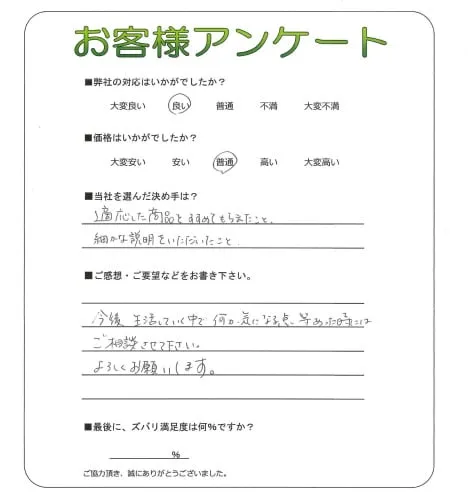 お客様アンケート
■弊社の対応はいかがでしたか？
大変良い 良い 普通 不満 大変不満
■価格はいかがでしたか？
大変安い 安い 普通 高い 大変高い
■当社を選んだ決め手は？
適応した商品をすすめてもらえたこと、
細かな説明をいただいたこと
■ご感想・ご要望などをお書き下さい。
今後 生活していく中で 何か気になる点 等あった時には
ご相談させて下さい。
よろしくお願いします。
■最後に、ズバリ満足度は何%ですか？
%
ご協力頂き、誠にありがとうございました。